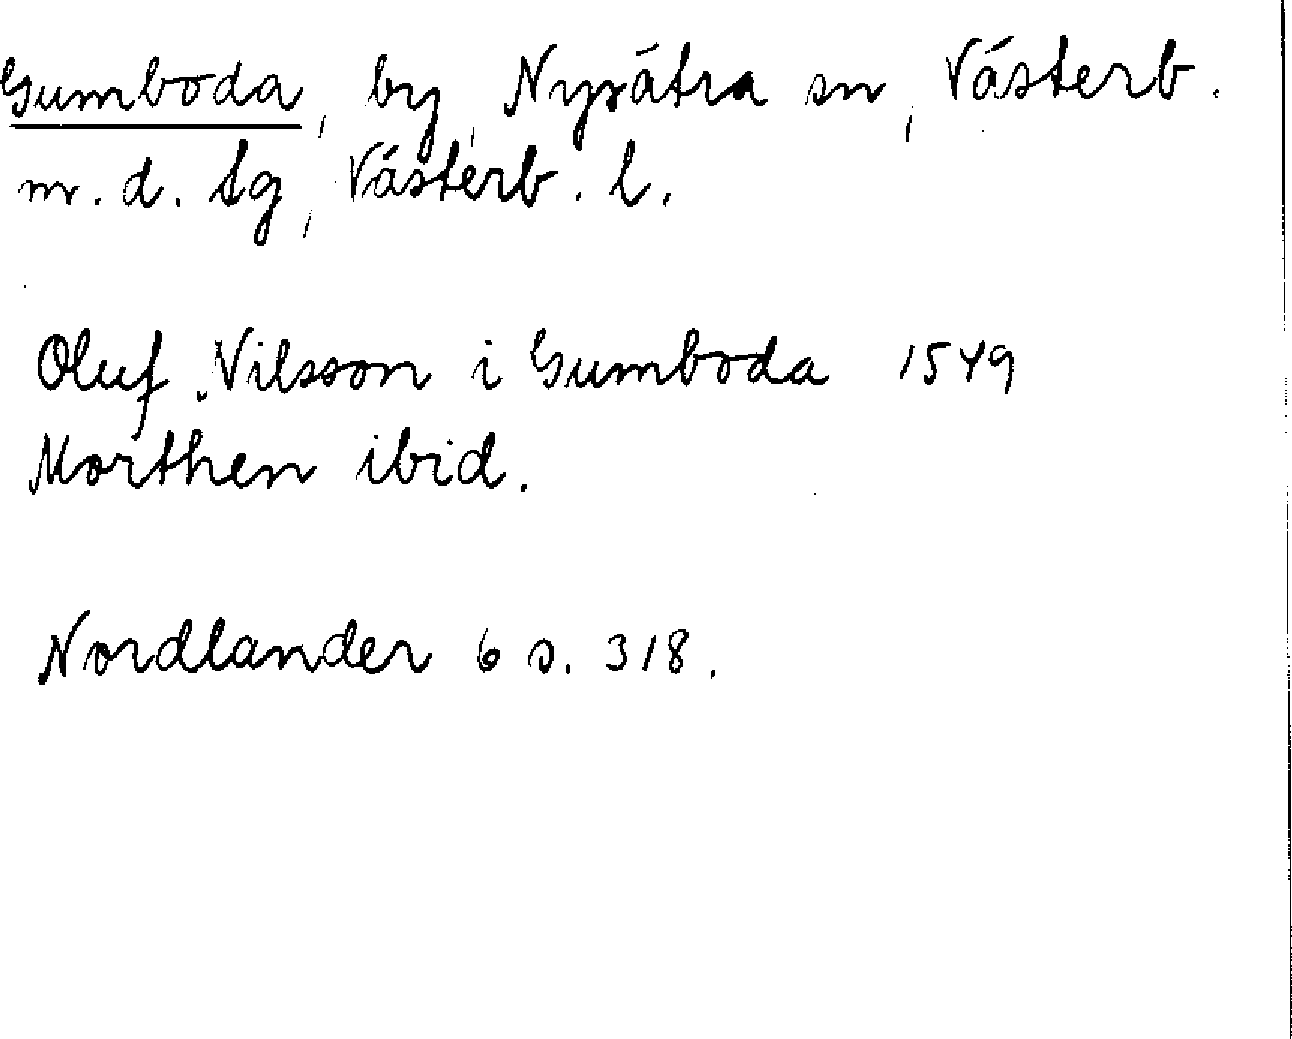 Gumboda, by, Nysätra sn, Västerb.
n. d. tg, Västerb. l.
Oluf Nilsson i Gumboda 1549
Morthen ibid.
Nordlander 6 s. 318.